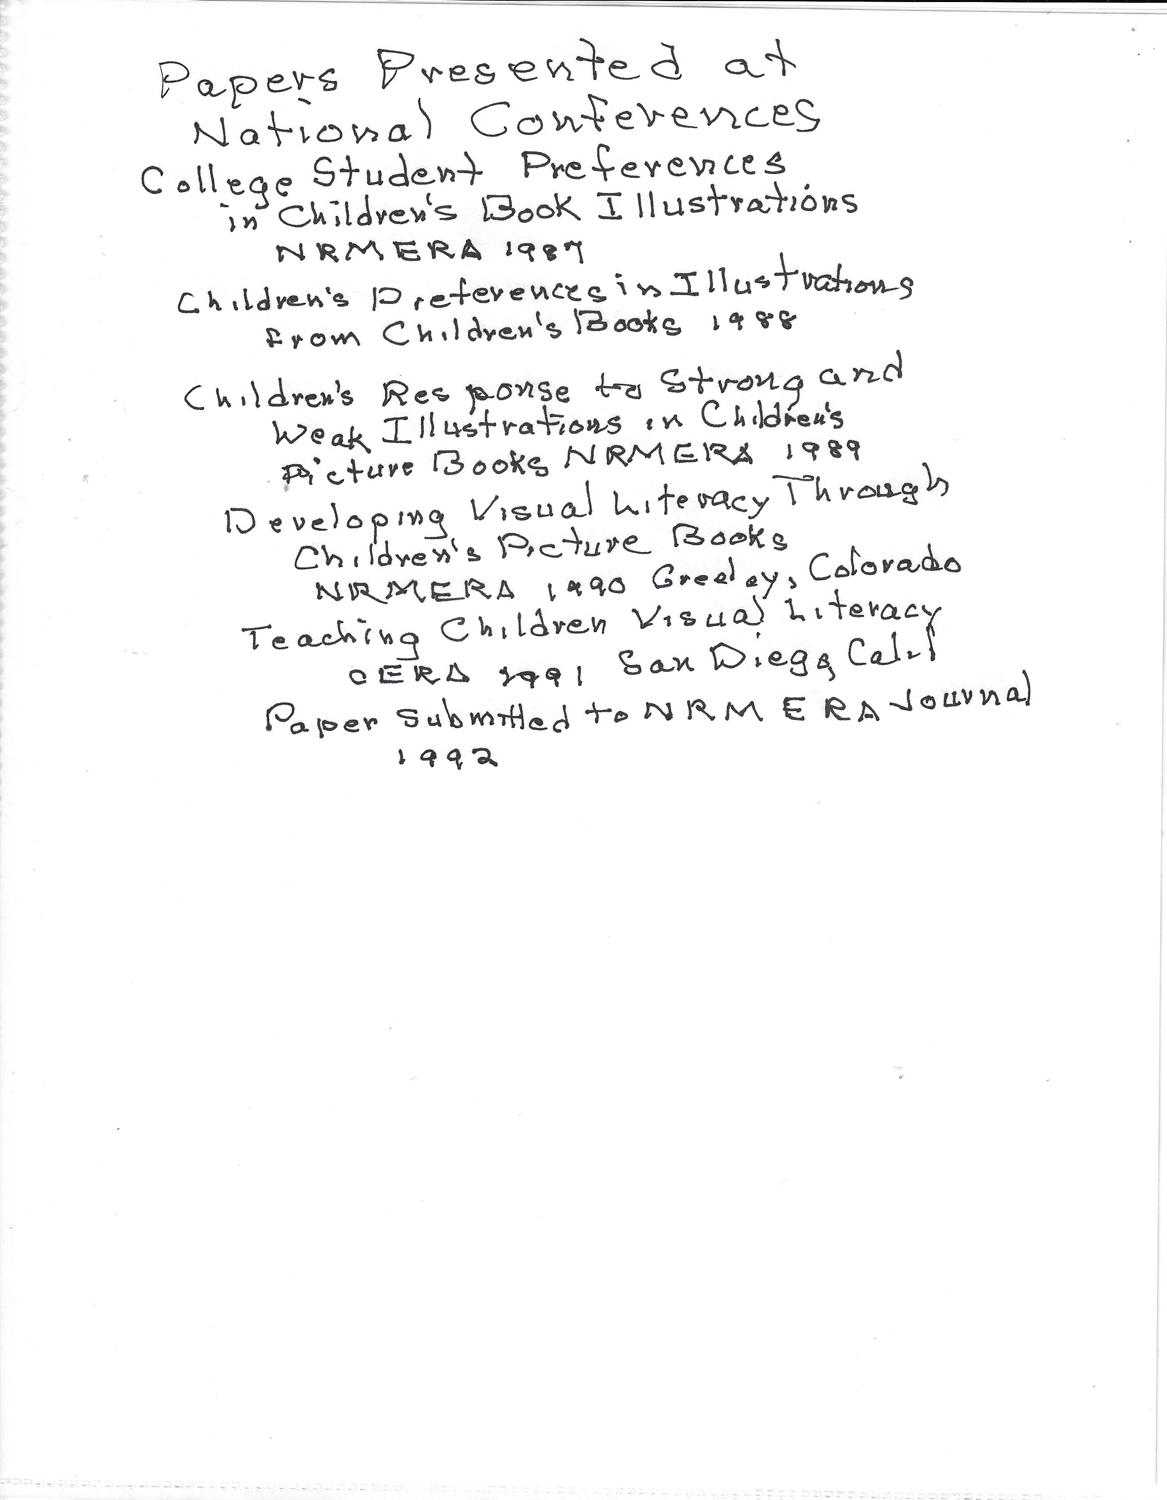 Papers Presented at
National Conferences
College Student Preferences
in Children's Book Illustrations
NRMERA 1987
Children's Preferences in Illustrations
from Children's Books 1988
Children's Response to Strong and
Weak Illustrations in Children's
Picture Books NRMERA 1989
Developing Visual Literacy Through
Children's Picture Books
NRMERA 1990 Greeley, Colorado
Teaching Children Visual Literacy
CERA 1991 San Diego, Calif
Paper Submitted to NRMERA Journal
1992